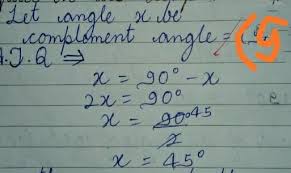 Let angle x be
complement angle = (
A.T.Q ⇒
x = 90° - x
2x = 90°
x = 90° 45
2
x = 45°